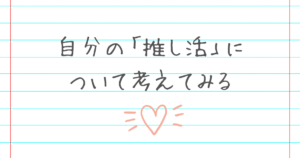 自分の「推し活」に
ついて考えてみる